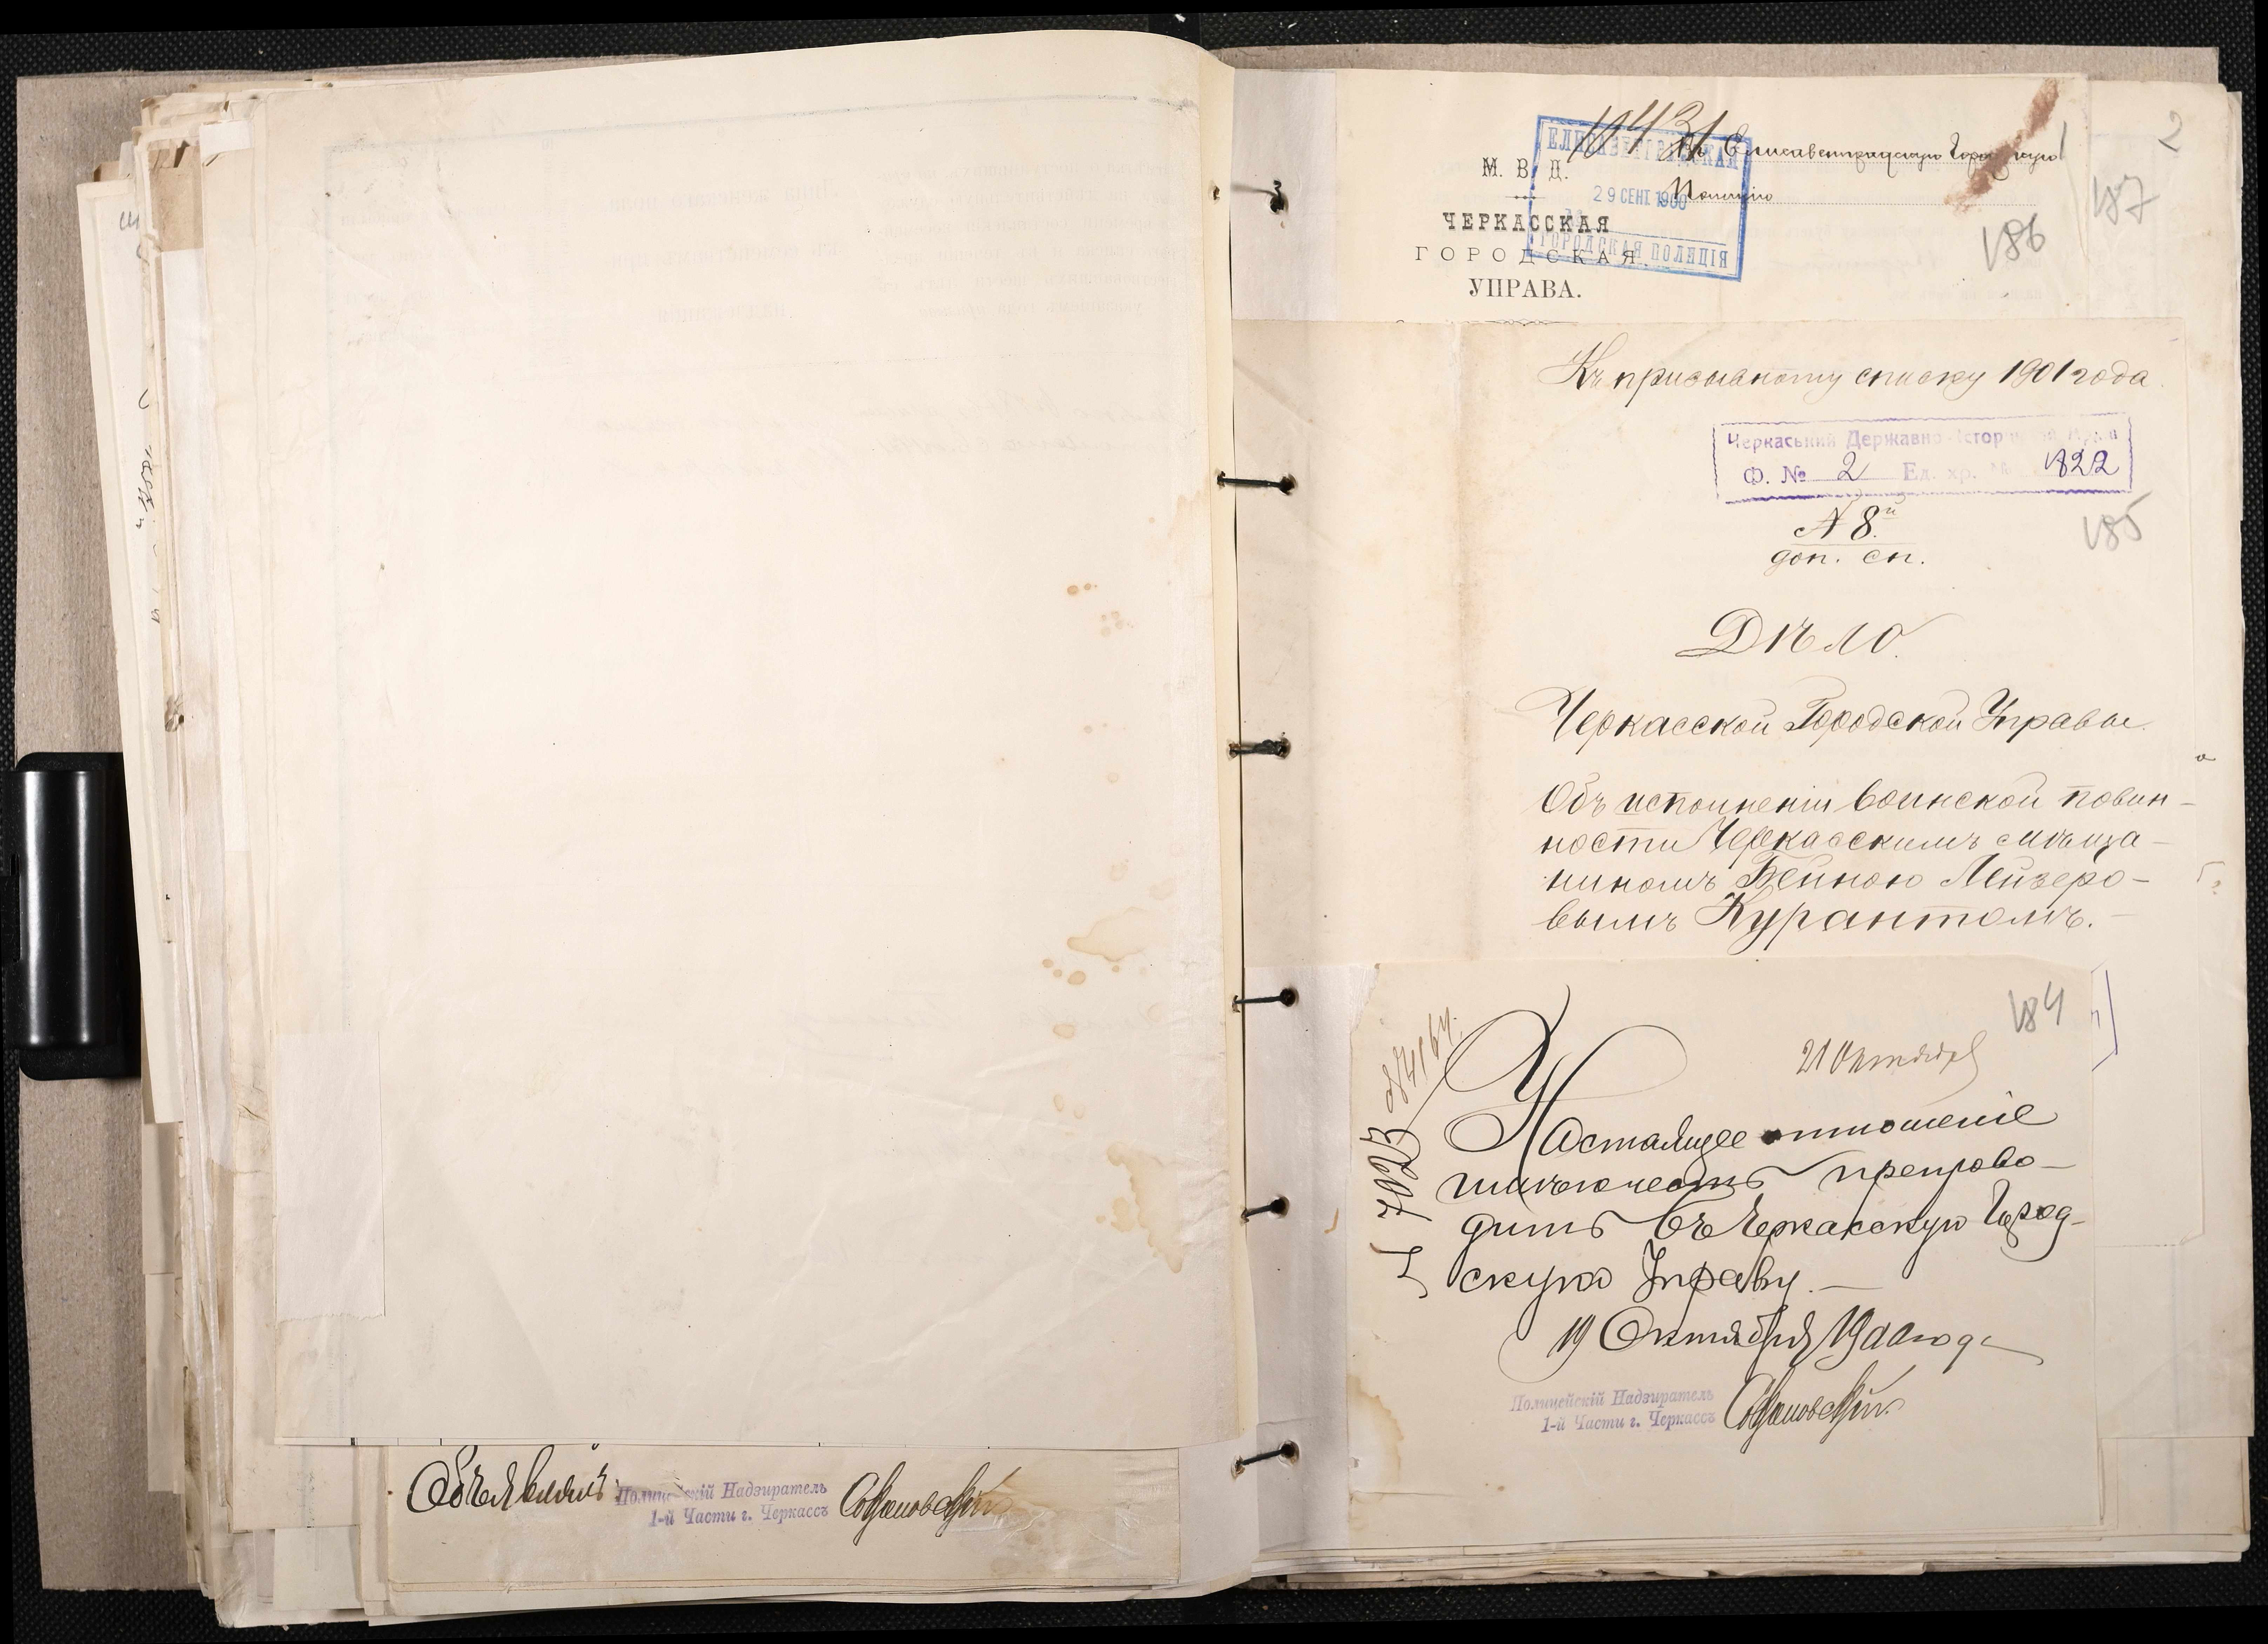 Объявлялъ
Полицейскій Надзиратель
1-й Части г. Черкассъ
2
187
186
10431
Въ Елисаветградскую Городскую
Полицію
ЕЛИСАВЕТГРАДСКАЯ
29 СЕНТ 1900
ГОРОДСКАЯ ПОЛИЦІЯ
М. В. Д.
ЧЕРКАССКАЯ
ГОРОДСКАЯ
УПРАВА.
Къ призывному списку 1901 года.
Черкаський Державно-Історичний Архів
Ф. № 2 Ед. хр. № 1822
185
№ 8й
доп. сп.
Дѣло
Черкасской Городской Управы.
Объ исполненіи воинской повин-
ности Черкасскимъ мѣща-
ниномъ Бейною Лейзеро-
вымъ Курантомъ.
184
21 Октября
7023
Настоящее отношеніе
препрово-
дить въ Черкасскую Город-
скую Управу.
19 Октября 1900 года
Полицейскій Надзиратель
1-й Части г. Черкассъ